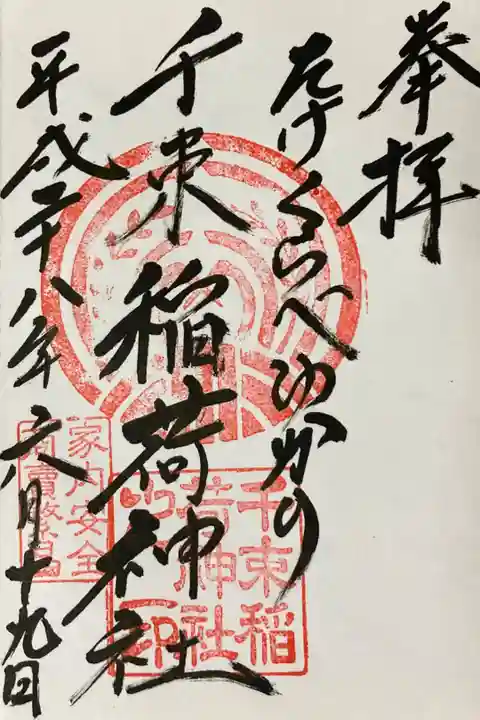 奉拝
たけくらべゆかりの
千束稲荷神社
平成二十八年六月十九日
千束稲
荷神社
之印
家内安全
商賣繁昌